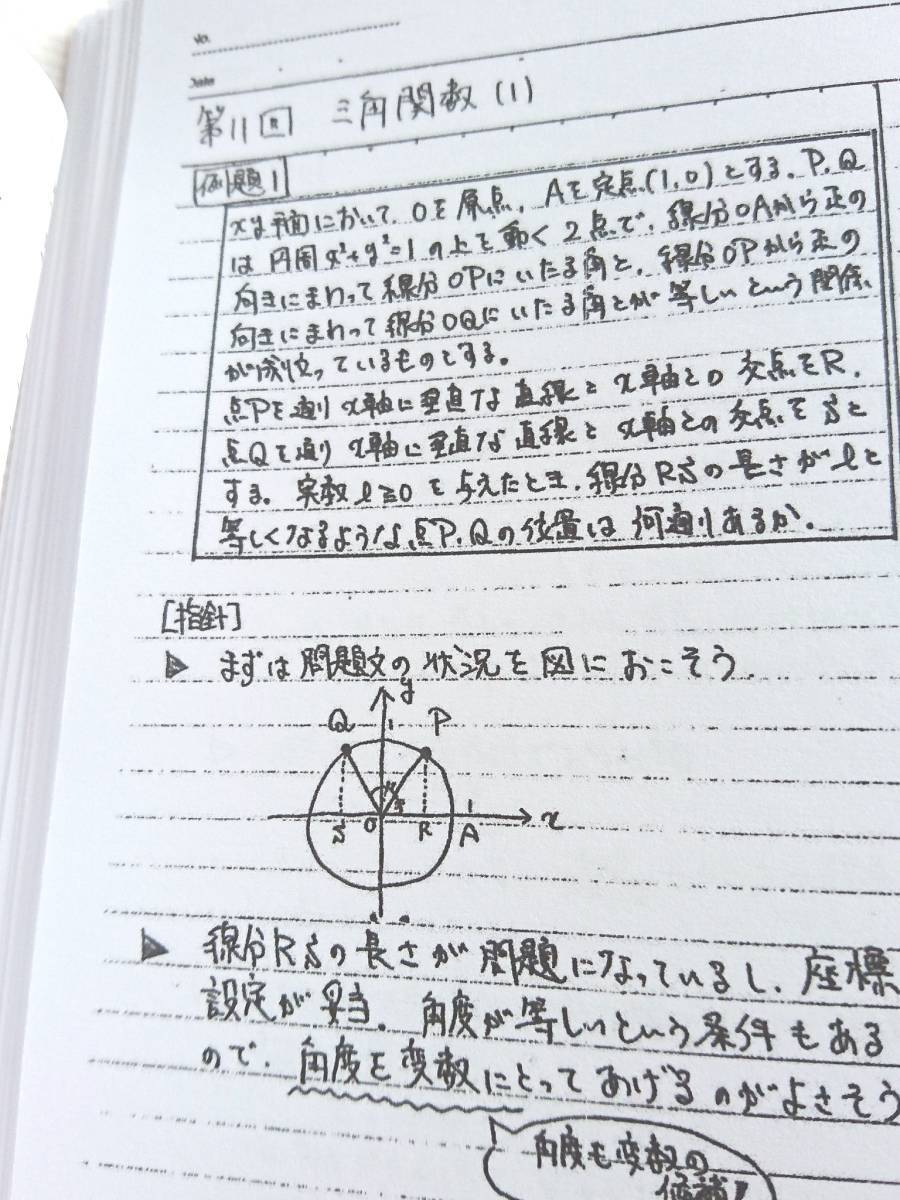 No.
Date
第11回 三角関数(1)
例題1
xy平面において、Oを原点、Aを定点(1,0)とする。P,Q
は円周x²+y²=1の上を動く2点で、線分OAから正の
向きにまわって線分OPにいたる角と、線分OPから正の
向きにまわって線分OQにいたる角とが等しいという関係
が成り立っているものとする。
点Pを通りx軸に垂直な直線とx軸との交点をR、
点Qを通りx軸に垂直な直線とx軸との交点をSと
する。実数l≧0を与えたとき、線分RSの長さがlと
等しくなるような点P,Qの位置は何通りあるか。
[指針]
▶ まずは問題文の状況を図におこそう。
y
Q 1 P
S O R 1 x
A
▶ 線分RSの長さが問題になっているし、座標
設定が妥当。角度が等しいという条件もある
ので、角度を変数にとってあげるのがよさそう
角度も変数の
候補!